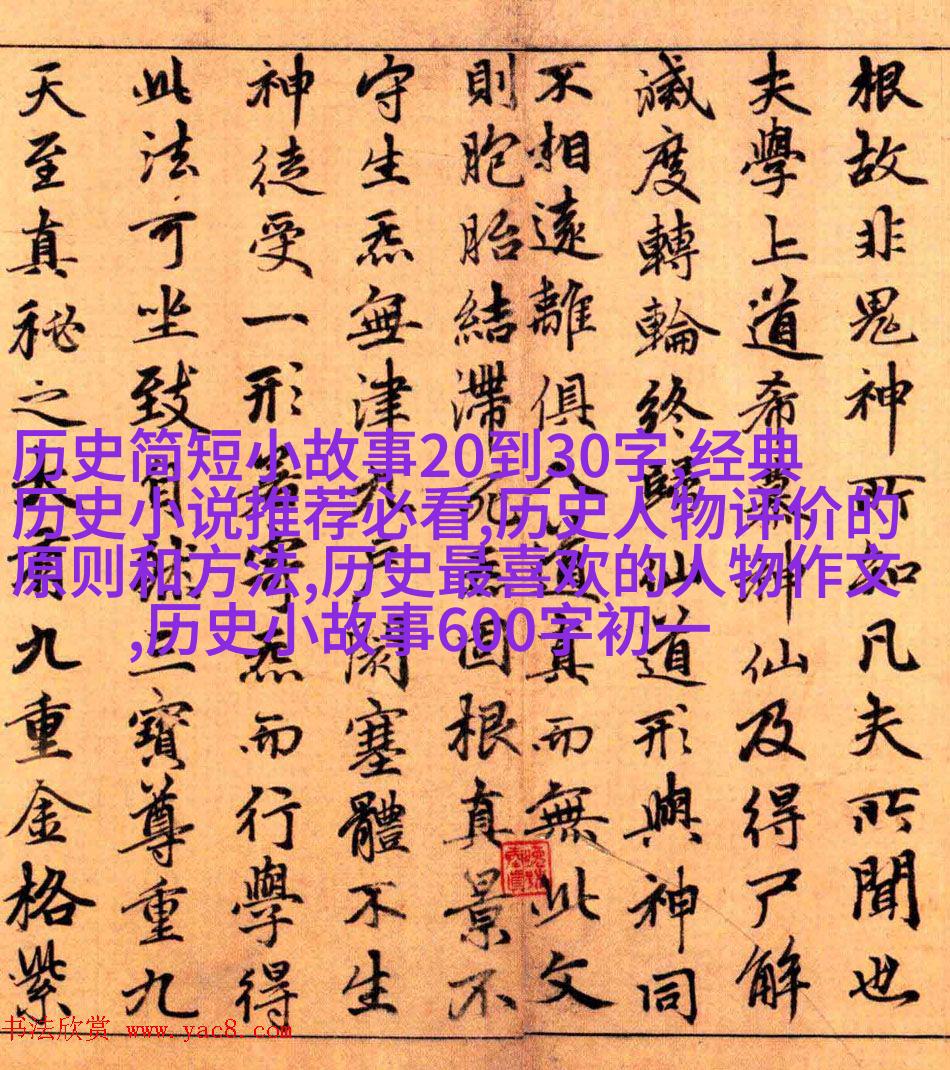 根故非鬼神所知凡夫所聞也
夫學上道希慕神仙及得尸解
滅度轉輪終歸仙道形與神同
不相遠離俱入道真而無此文
則胞胎結滯死固根真景不
守生炁無津閡塞體不生
神徒受一形若寄炁而行學得
此法可坐致自然三寶尊重九
天至真秘之九重金格紫
历史简短小故事20到30字,经典
历史小说推荐必看,历史人物评价的
原则和方法,历史最喜欢的人物作文
,历史小故事600字初一
书法欣赏 www.yac8.com